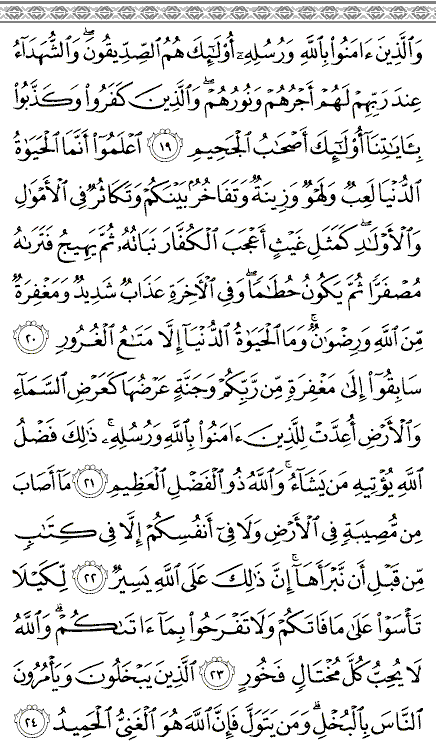 وَالَّذِينَ ءَامَنُوا۟ بِاللَّهِ وَرُسُلِهِۦٓ أُو۟لَٰٓئِكَ هُمُ الصِّدِّيقُونَ ۖ وَالشُّهَدَآءُ
عِندَ رَبِّهِمْ لَهُمْ أَجْرُهُمْ وَنُورُهُمْ ۖ وَالَّذِينَ كَفَرُوا۟ وَكَذَّبُوا۟
بِـَٔايَٰتِنَآ أُو۟لَٰٓئِكَ أَصْحَٰبُ الْجَحِيمِ ١٩ اعْلَمُوٓا۟ أَنَّمَا الْحَيَوٰةُ
الدُّنْيَا لَعِبٌ وَلَهْوٌ وَزِينَةٌ وَتَفَاخُرٌۢ بَيْنَكُمْ وَتَكَاثُرٌ فِى الْأَمْوَٰلِ
وَالْأَوْلَٰدِ ۖ كَمَثَلِ غَيْثٍ أَعْجَبَ الْكُفَّارَ نَبَاتُهُۥ ثُمَّ يَهِيجُ فَتَرَىٰهُ
مُصْفَرًّا ثُمَّ يَكُونُ حُطَٰمًا ۖ وَفِى الْـَٔاخِرَةِ عَذَابٌ شَدِيدٌ وَمَغْفِرَةٌ
مِّنَ اللَّهِ وَرِضْوَٰنٌ ۚ وَمَا الْحَيَوٰةُ الدُّنْيَآ إِلَّا مَتَٰعُ الْغُرُورِ ٢٠
سَابِقُوٓا۟ إِلَىٰ مَغْفِرَةٍ مِّن رَّبِّكُمْ وَجَنَّةٍ عَرْضُهَا كَعَرْضِ السَّمَآءِ
وَالْأَرْضِ أُعِدَّتْ لِلَّذِينَ ءَامَنُوا۟ بِاللَّهِ وَرُسُلِهِۦ ۚ ذَٰلِكَ فَضْلُ
اللَّهِ يُؤْتِيهِ مَن يَشَآءُ ۚ وَاللَّهُ ذُو الْفَضْلِ الْعَظِيمِ ٢١ مَآ أَصَابَ
مِن مُّصِيبَةٍ فِى الْأَرْضِ وَلَا فِىٓ أَنفُسِكُمْ إِلَّا فِى كِتَٰبٍ
مِّن قَبْلِ أَن نَّبْرَأَهَآ ۚ إِنَّ ذَٰلِكَ عَلَى اللَّهِ يَسِيرٌ ٢٢ لِّكَيْلَا
تَأْسَوْا۟ عَلَىٰ مَا فَاتَكُمْ وَلَا تَفْرَحُوا۟ بِمَآ ءَاتَىٰكُمْ ۗ وَاللَّهُ
لَا يُحِبُّ كُلَّ مُخْتَالٍ فَخُورٍ ٢٣ الَّذِينَ يَبْخَلُونَ وَيَأْمُرُونَ
النَّاسَ بِالْبُخْلِ ۗ وَمَن يَتَوَلَّ فَإِنَّ اللَّهَ هُوَ الْغَنِىُّ الْحَمِيدُ ٢٤